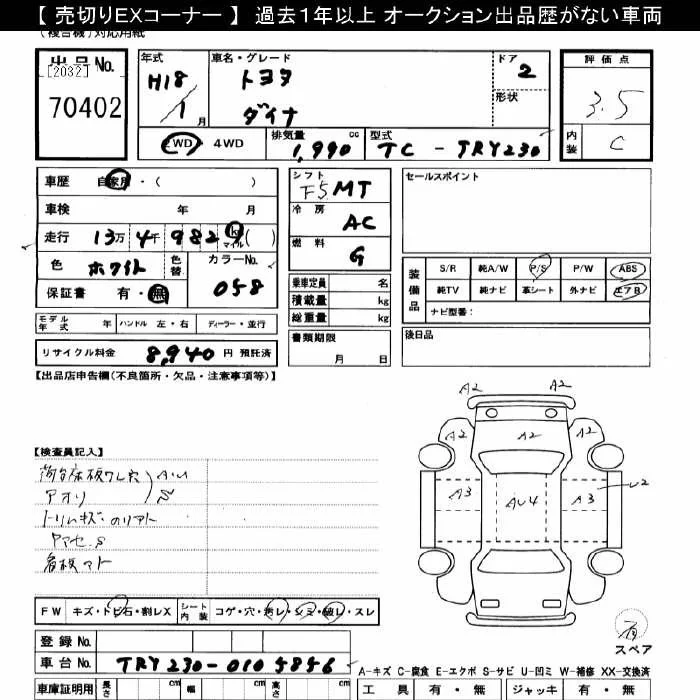 【 売切りEXコーナー 】 過去1年以上 オークション出品歴がない車両
(複合機)対応用紙
出品No.
[2032]
70402
年式
H18
1月
車名・グレード
トヨタ
ダイナ
ドア
2
形状
評価点
3.5
内装
C
2WD ・ 4WD
排気量
1,990 cc
型式
TC - TRY230
車歴 自家用・( )
車検 年 月
走行 13万 4千 982 km マイル ( )
色 ホワイト 色替 カラーNo. 058
保証書 有・無
シフト F5 MT
冷房 AC
燃料 G
乗車定員 名
積載量 kg
総重量 kg
セールスポイント
装備品
S/R 純A/W P/S P/W ABS
純TV 純ナビ 革シート 外ナビ エアB
ナビ型番:
モデル年式 年 ハンドル 左・右 ディーラー・並行
リサイクル料金 8,940 円 預託済
書類期限
月 日
後日品
【出品店申告欄(不良箇所・欠品・注意事項等)】
【検査員記入】
荷台床板ワレ穴
アオリ
A・U
S
トリムキズ・
A2 A2
A2 A2 A2
A3 AU4 A3 U2
FW キズ・トビ石・割レX シート内装 コゲ・穴・汚レ・シミ・破レ・スレ
登録No.
車台No. TRY230-0105856
有
スペア
A-キズ C-腐食 E-エクボ S-サビ U-凹ミ W-補修 XX-交換済
車庫証明用 長さ cm 幅 cm 高さ cm
工具 有・無 ジャッキ 有・無